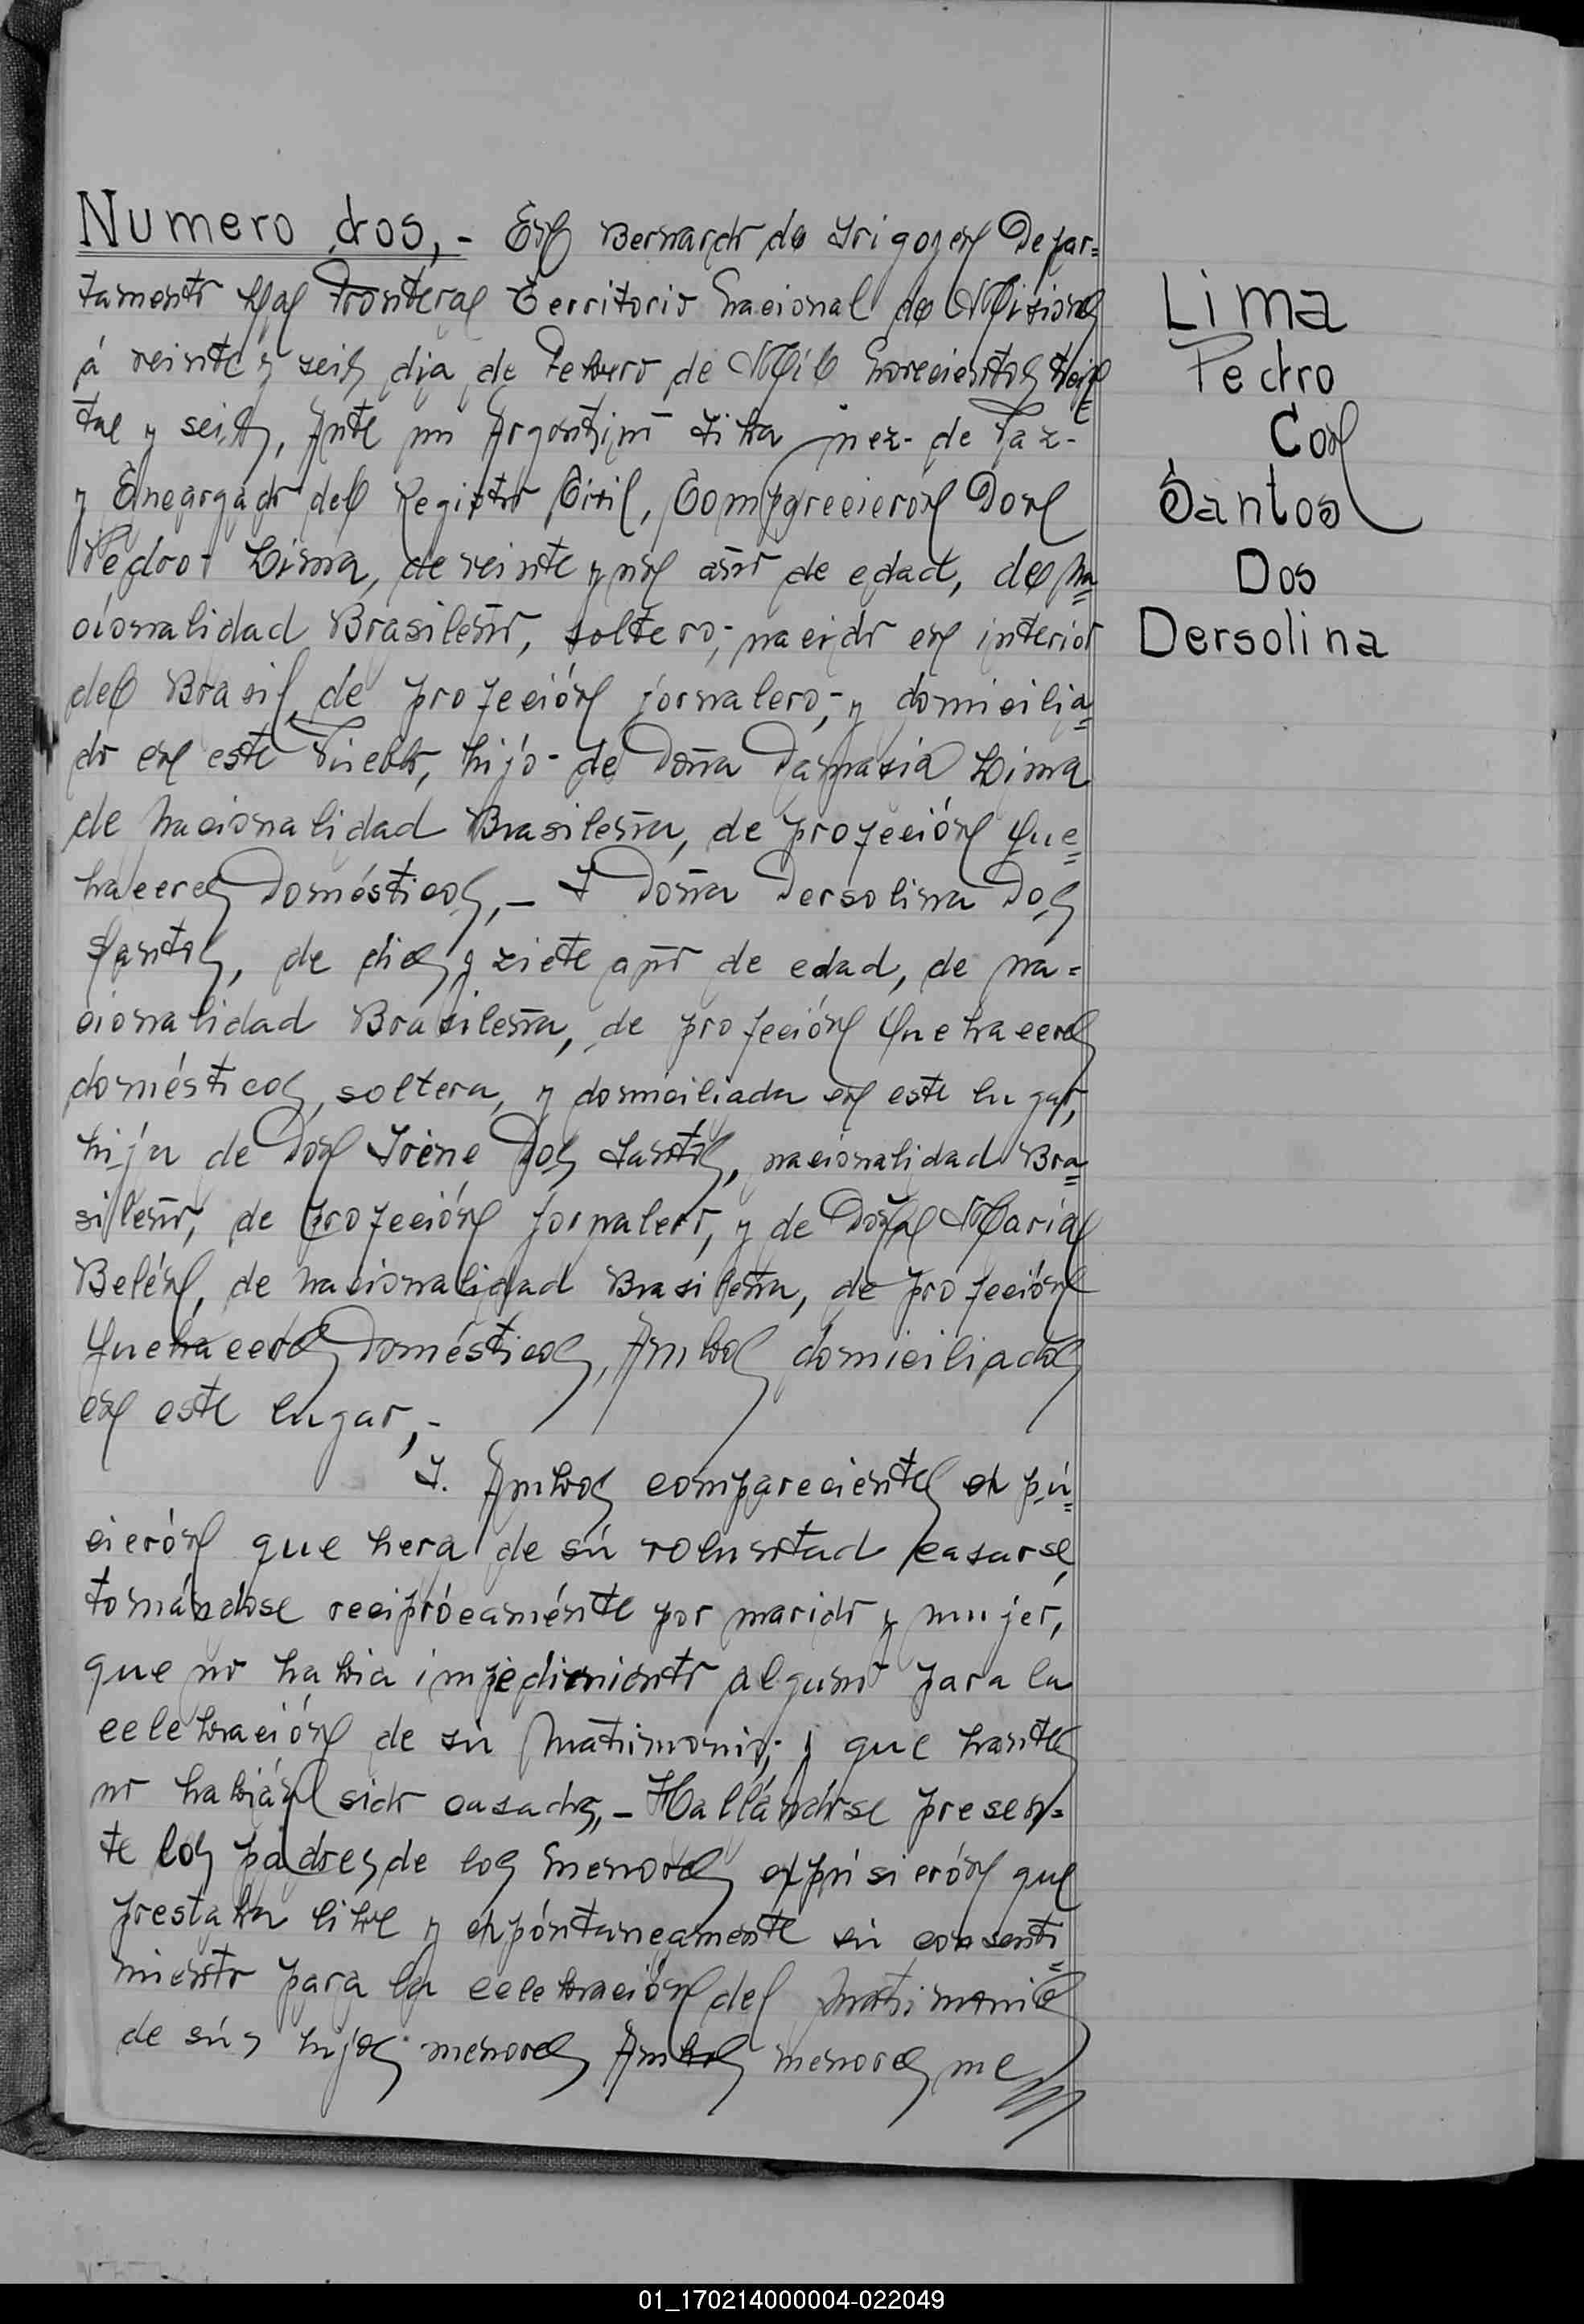 Numero dos,- En Bernardo de Irigoyen Depar=
tamento La Frontera Territorio Nacional de Misiones
á veinte y seis dia de Febrero de Mil Novecientos trein
ta y seis, Ante mi juez- de Paz-
y Encargado del Registro Civil, Comparecierón Don
Pedro- Lima, de veinte y un año de edad, de na=
cionalidad Brasileño, soltero,- nacido en interior
del Brasil, de profeción jornalero,- y domicilia=
do en este Pueblo, hijo- de Doña Damasia Lima
de nacionalidad Brasileña, de profeción Que=
haceres Domésticos,- I Doña Dersolina Dos
Santos, de dies y ziete año de edad, de na=
cionalidad Brasileña, de profeción Quehaceres
domésticos, soltera, y domiciliada en este lugar,
hija de Don Irene Dos Santos, nacionalidad Bra=
sileño, de profeción jornalero, y de Doña Maria
Belén, de nacionalidad Brasileña, de profeción
Quehaceres Domésticos, Ambos domiciliados
en este lugar,-
I. Ambos comparecientes expú=
cierón que hera de sú voluntad casarse,
tomándose recíprócaménte por marido y mujer,
que no habia impedimiento alguno para la
celebración de sú Matrimonio; y que hantes
no habián sido casados,- Hallándose presen=
te los padres de los menores expúsierón que
prestaba libre y expóntaneamente sú consenti=
miento para la celebración del Matrimonio
de sús hijos menores Ambos menores me
Lima
Pedro
Con
Santos
Dos
Dersolina
01_170214000004-022049